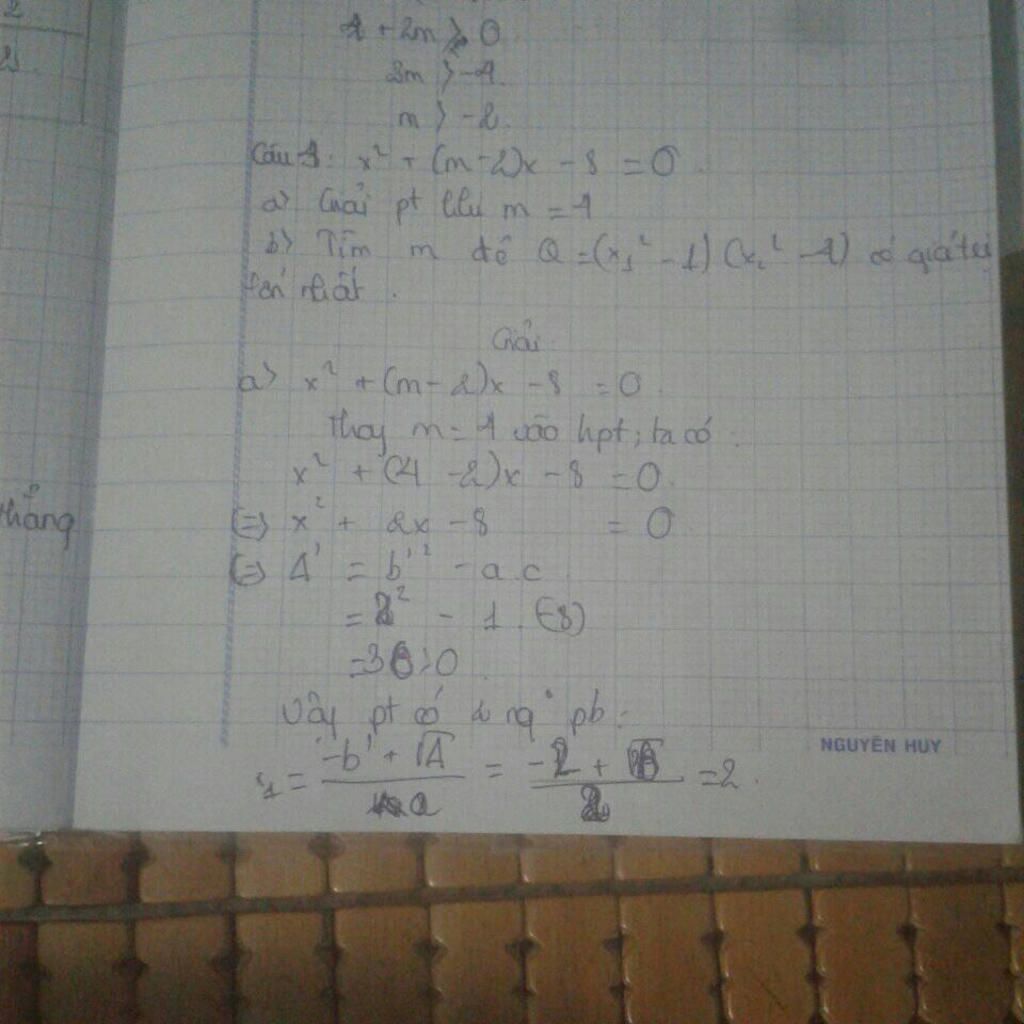 2
4 + 2m > 0
2m > -4
m > -2
Câu 1: x² + (m-2)x - 8 = 0
a) Giải pt khi m = 4
b) Tìm m để Q = (x₁² - 1)(x₂² - 1) có giá trị
lớn nhất.
Giải
a) x² + (m-2)x - 8 = 0
Thay m = 4 vào hpt, ta có:
x² + (4 - 2)x - 8 = 0
thẳng
(=) x² + 2x - 8 = 0
(=) Δ' = b'² - a.c
= ² - 1.(-8)
= 36 > 0
Vậy pt có 2 ng° pb:
x₁ = -b' + √Δ / a = -2 + √ / 2 = 2
NGUYÊN HUY